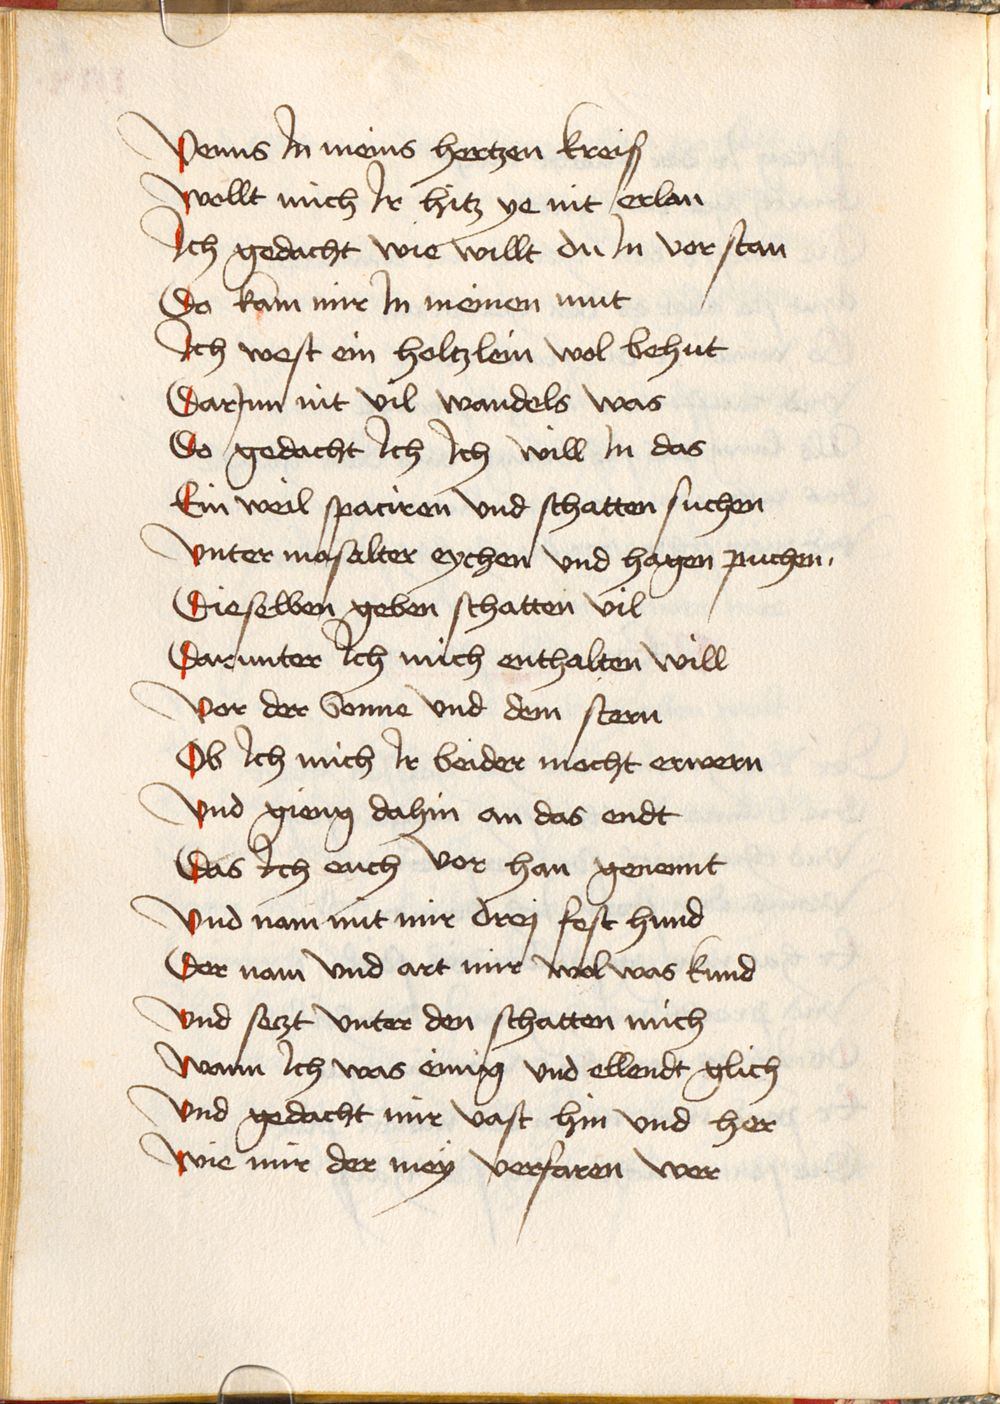 Venus In meins hertzen kreiß
Wollt mich Ir hitz ye nit erlan
Ich gedacht wie willt du In verstan
Do kam mir In meinen mut
Ich west ein holtzlein wol behut
Darjnn nit vil wandels was
Do gedacht Ich Ich will In das
Ein weil spaciren vnd schatten suchen
Vnter masalter eychen vnd hagen puchen.
Dieselben geben schatten vil
Darunter Ich mich enthalten will
Vor der Sonne vnd dem stern
Ob Ich mich Ir beider mocht erwern
Vnd gieng dahin an das endt
Das Ich euch vor han genennt
Vnd nam mit mir drej fest hund
Der nam vnd art mir wol was kund
Vnd setzt vnter den schatten mich
Wann Ich was einig vnd ellendt glich
Vnd gedacht mir vast hin vnd her
Wie mir der mey verfaren wer